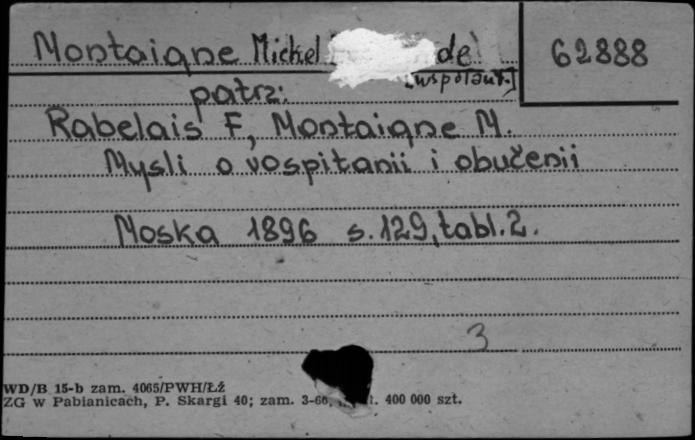 Montaigne Michel de
62888
[współaut.]
patrz:
Rabelais F, Montaigne M.
Mysli o vospitanii i obučenii
Moska 1896 s.129, tabl.2.
3
WD/B 15-b zam. 4065/PWH/Łź
ZG w Pabianicach, P. Skargi 40; zam. 3-66, 400 000 szt.